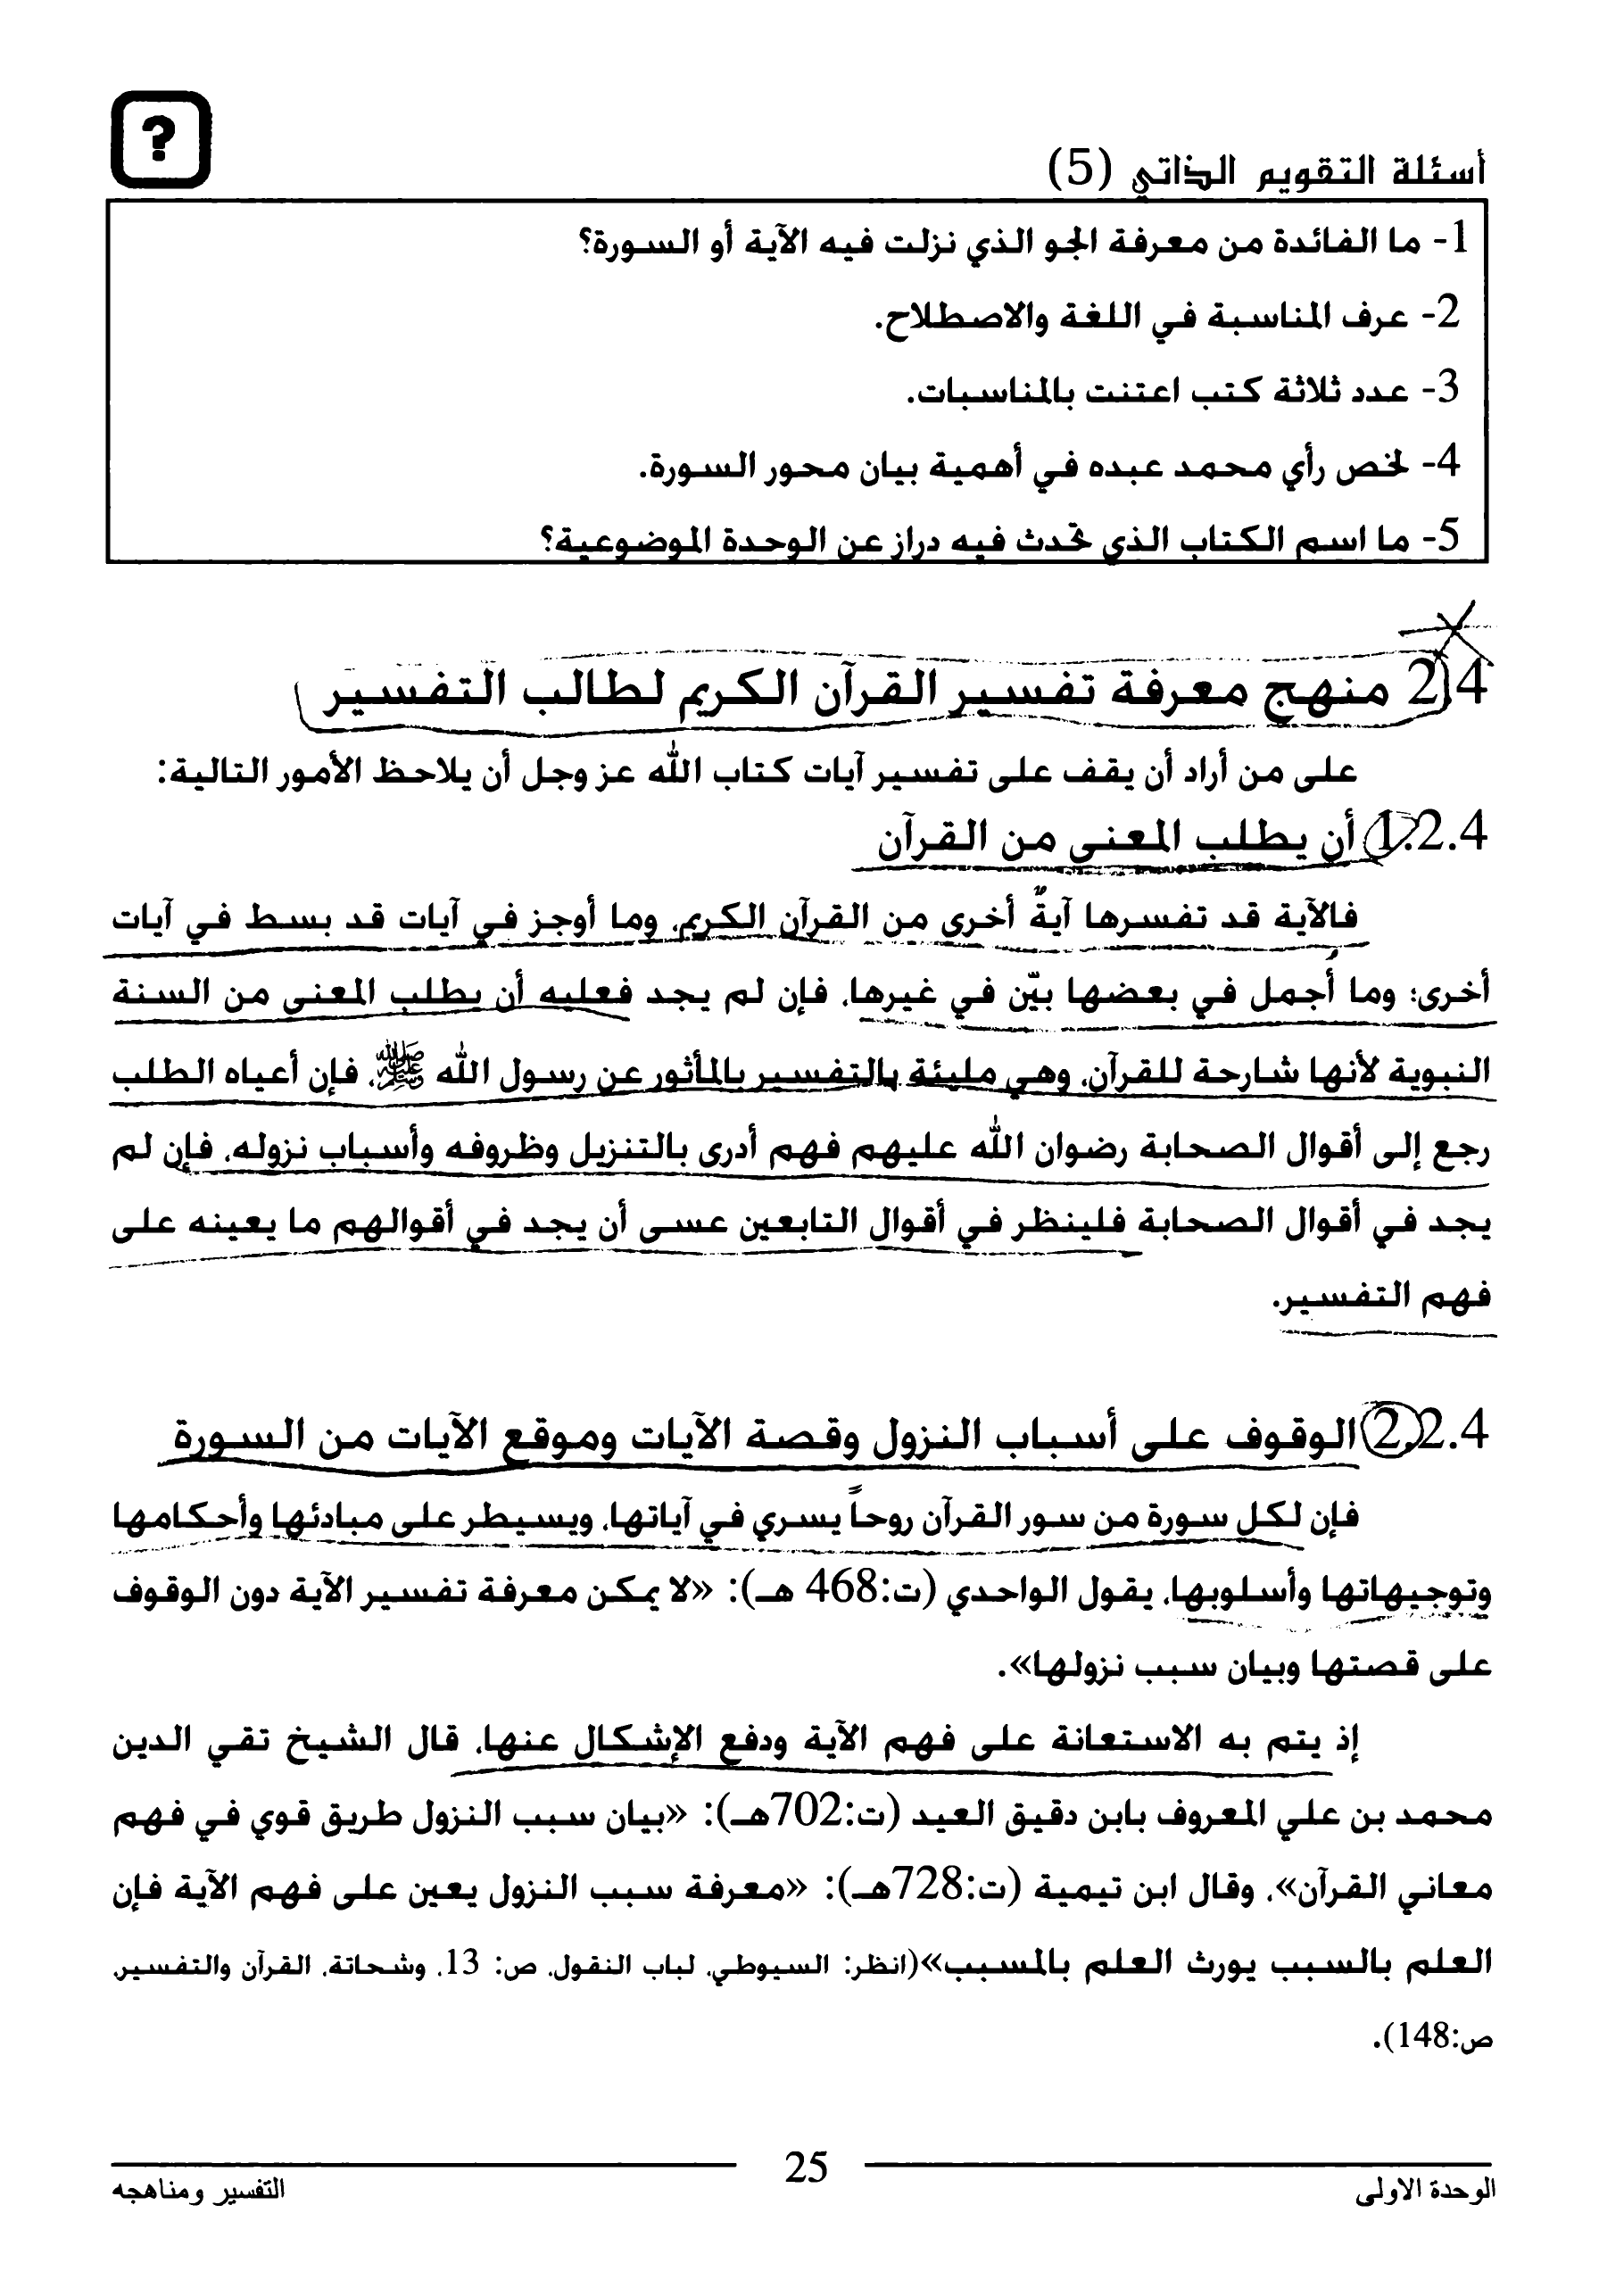 ?
أسئلة التقويم الذاتي (5)
1- ما الفائدة من معرفة الجو الذي نزلت فيه الآية أو السورة؟
2- عرف المناسبة في اللغة والاصطلاح.
3- عدد ثلاثة كتب اعتنت بالمناسبات.
4- لخص رأي محمد عبده في أهمية بيان محور السورة.
5- ما اسم الكتاب الذي تحدث فيه دراز عن الوحدة الموضوعية؟
2.4 منهج معرفة تفسير القرآن الكريم لطالب التفسير
على من أراد أن يقف على تفسير آيات كتاب الله عز وجل أن يلاحظ الأمور التالية:
1.2.4 أن يطلب المعنى من القرآن
فالآية قد تفسرها آيةٌ أخرى من القرآن الكريم، وما أوجز في آيات قد بسط في آيات
أخرى؛ وما أُجمل في بعضها بيّن في غيرها، فإن لم يجد فعليه أن يطلب المعنى من السنة
النبوية لأنها شارحة للقرآن، وهي مليئة بالتفسير بالمأثور عن رسول الله ﷺ، فإن أعياه الطلب
رجع إلى أقوال الصحابة رضوان الله عليهم فهم أدرى بالتنزيل وظروفه وأسباب نزوله، فإن لم
يجد في أقوال الصحابة فلينظر في أقوال التابعين عسى أن يجد في أقوالهم ما يعينه على
فهم التفسير.
2.2.4 الوقوف على أسباب النزول وقصة الآيات وموقع الآيات من السورة
فإن لكل سورة من سور القرآن روحاً يسري في آياتها، ويسيطر على مبادئها وأحكامها
وتوجيهاتها وأسلوبها، يقول الواحدي (ت:468 هـ): «لا يمكن معرفة تفسير الآية دون الوقوف
على قصتها وبيان سبب نزولها».
إذ يتم به الاستعانة على فهم الآية ودفع الإشكال عنها، قال الشيخ تقي الدين
محمد بن علي المعروف بابن دقيق العيد (ت:702هـ): «بيان سبب النزول طريق قوي في فهم
معاني القرآن»، وقال ابن تيمية (ت:728هـ): «معرفة سبب النزول يعين على فهم الآية فإن
العلم بالسبب يورث العلم بالمسبب»(انظر: السيوطي، لباب النقول، ص: 13، وشحاتة، القرآن والتفسير،
ص:148).
25
الوحدة الاولى
التفسير ومناهجه